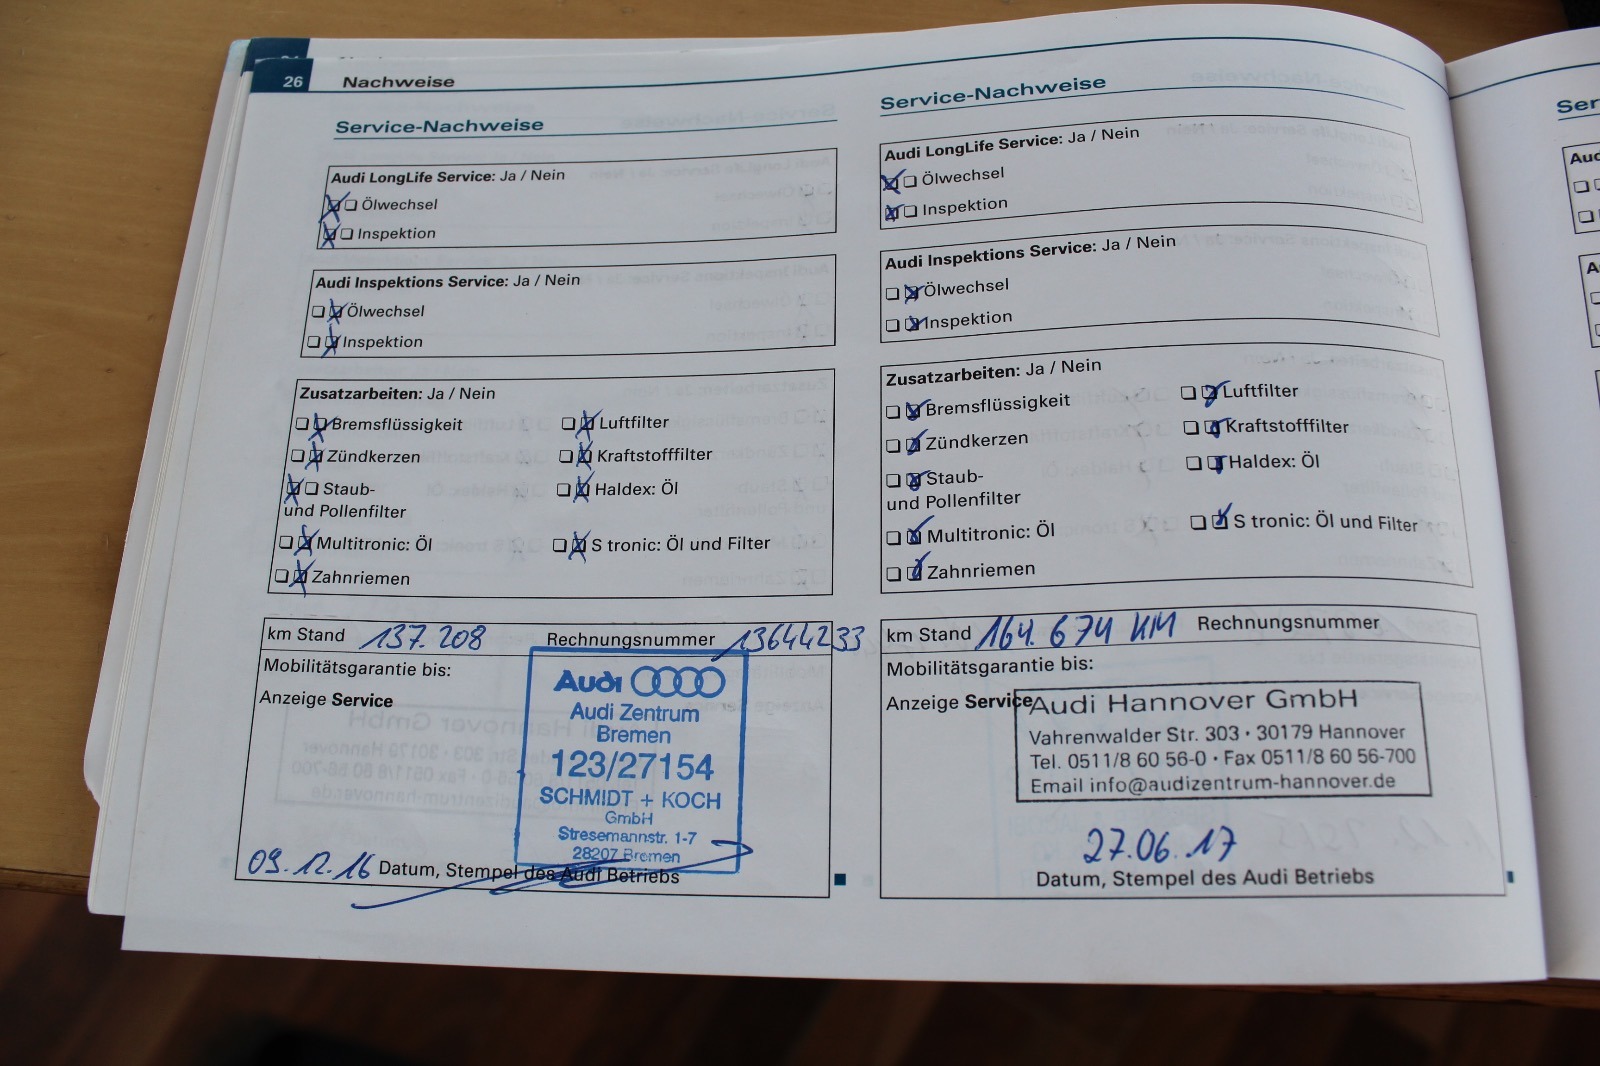 26 Nachweise
Service-Nachweise
Audi LongLife Service: Ja / Nein
Ölwechsel
Inspektion
Audi Inspektions Service: Ja / Nein
Ölwechsel
Inspektion
Zusatzarbeiten: Ja / Nein
Bremsflüssigkeit Luftfilter
Zündkerzen Kraftstofffilter
Staub- Haldex: Öl
und Pollenfilter
Multitronic: Öl S tronic: Öl und Filter
Zahnriemen
km Stand 137.208 Rechnungsnummer 13644233
Mobilitätsgarantie bis:
Anzeige Service
Audi
Audi Zentrum
Bremen
123/27154
SCHMIDT + KOCH
GmbH
Stresemannstr. 1-7
28207 Bremen
09.12.16 Datum, Stempel des Audi Betriebs
Service-Nachweise
Audi LongLife Service: Ja / Nein
Ölwechsel
Inspektion
Audi Inspektions Service: Ja / Nein
Ölwechsel
Inspektion
Zusatzarbeiten: Ja / Nein
Bremsflüssigkeit Luftfilter
Zündkerzen Kraftstofffilter
Staub- Haldex: Öl
und Pollenfilter
Multitronic: Öl S tronic: Öl und Filter
Zahnriemen
km Stand 164.674 KM Rechnungsnummer
Mobilitätsgarantie bis:
Anzeige Service
Audi Hannover GmbH
Vahrenwalder Str. 303 · 30179 Hannover
Tel. 0511/8 60 56-0 · Fax 0511/8 60 56-700
Email info@audizentrum-hannover.de
27.06.17
Datum, Stempel des Audi Betriebs